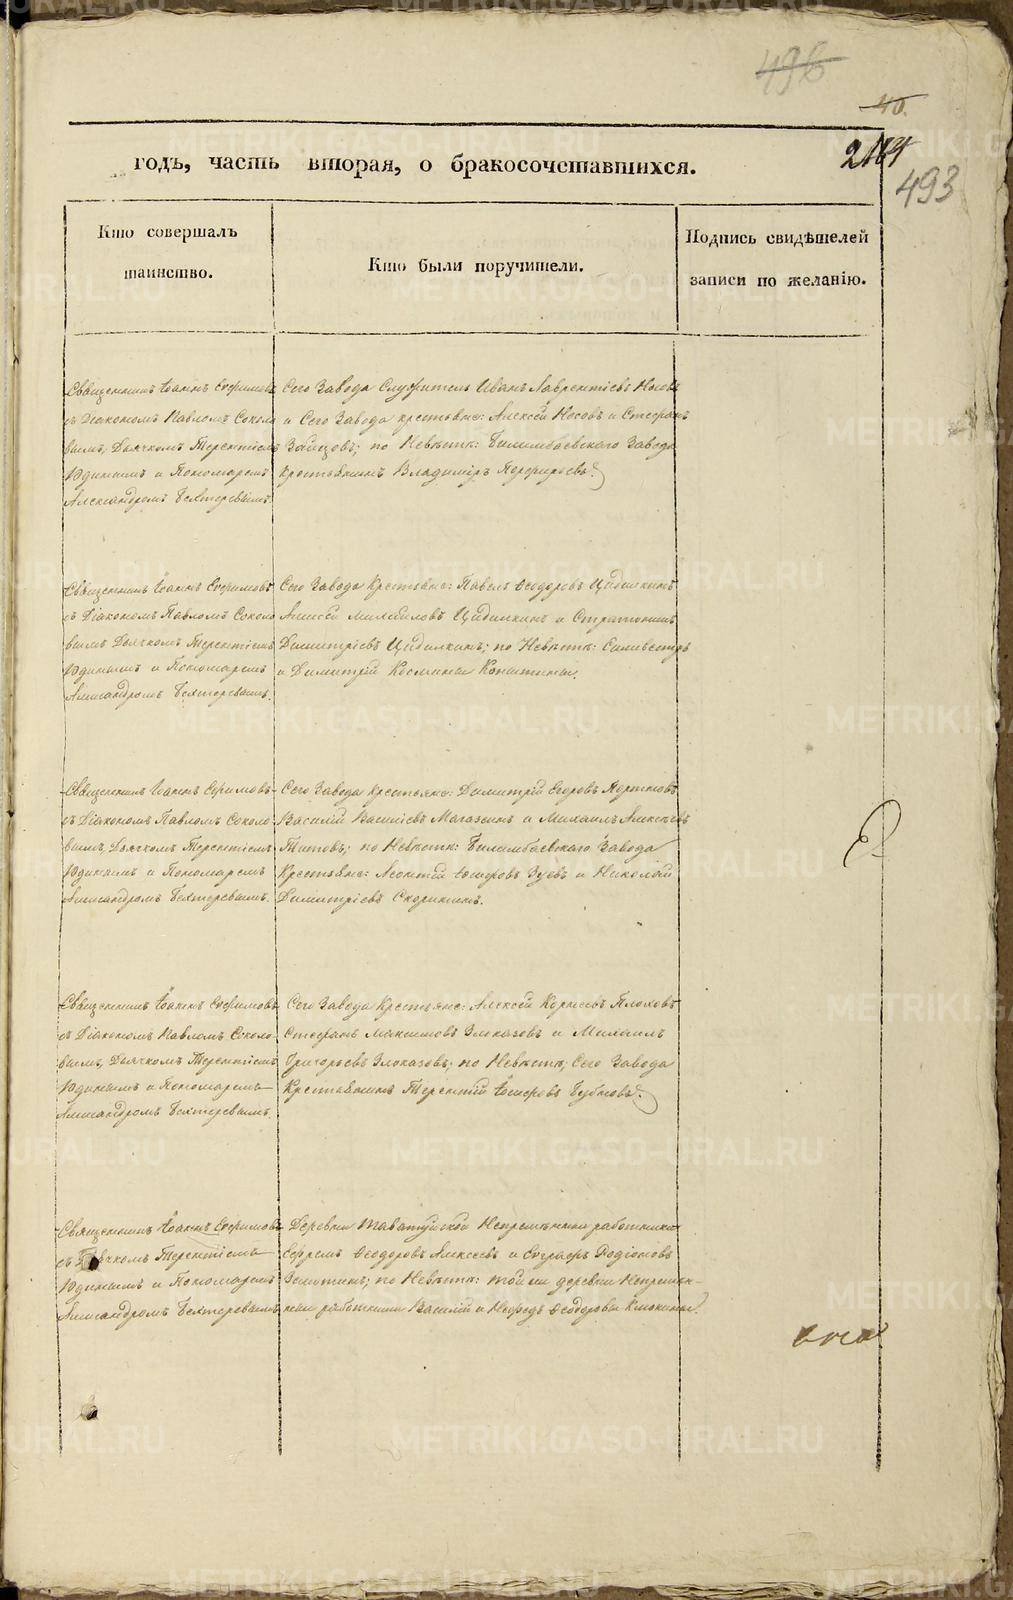 496
40.
годъ, часть вторая, о бракосочетавшихся.
493
Кто совершалъ
таинство.
Кто были поручители.
Подпись свидѣтелей
записи по желанію.
Священникъ Іоаннъ Ефимовъ
съ Діакономъ Павломъ Соколо
вымъ, Дьячкомъ Терентіемъ
Юдинымъ и Пономаремъ
Александромъ Бехтеревымъ.
Сего Завода Служитель Иванъ Лаврентіевъ Носовъ
и Сего Завода крестьяне: Алексѣй Носовъ и Стефанъ
Зайцовъ; по Невѣстѣ: Билимбаевскаго Завода
Крестьянинъ Владиміръ Порфирьевъ.
Священникъ Іоаннъ Ефимовъ
съ Діакономъ Павломъ Соколо
вымъ Дьячкомъ Терентіемъ
Юдинымъ и Пономаремъ
Александромъ Бехтеревымъ.
Сего Завода Крестьяне: Павелъ Ѳеодоровъ Цидилкинъ
Алексѣй Михайловъ Цидилкинъ и Стратоникъ
Димитріевъ Цидилкинъ; по Невѣстѣ: Силивестръ
и Димитрій Космины Копытины.
Священникъ Іоаннъ Ефимовъ
съ Діакономъ Павломъ Соколо-
вымъ, Дьячкомъ Терентіемъ
Юдинымъ и Пономаремъ
Александромъ Бехтеревымъ.
Сего Завода Крестьяне: Димитрій Егоровъ
Василій Василіевъ Магазинъ и Михаилъ Алексѣевъ
Титовъ; по Невѣстѣ: Билимбаевскаго Завода
Крестьяне: Леонтій Зуевъ и Николай
Димитріевъ Скорынинъ.
Священникъ Іоаннъ Ефимовъ
съ Діакономъ Павломъ Соколо-
вымъ, Дьячкомъ Терентіемъ
Юдинымъ и Пономаремъ
Александромъ Бехтеревымъ.
Сего Завода Крестьяне: Алексѣй Плоховъ
Стефанъ Максимовъ Злоказовъ и Михаилъ
Григорьевъ Злоказовъ; по Невѣстѣ, Сего Завода
Крестьянинъ Терентій Бубновъ.
Священникъ Іоаннъ Ефимовъ
съ Дьячкомъ Терентіемъ
Юдинымъ и Пономаремъ
Александромъ Бехтеревымъ
Деревни Таватуйской Непремѣнные работники
Ефремъ Ѳеодоровъ Алексѣевъ и Родіоновъ
по Невѣстѣ: той же деревни Непремѣн-
ные работники Василій и Ѳеодоровы
METRIKI.GASO-URAL.RU